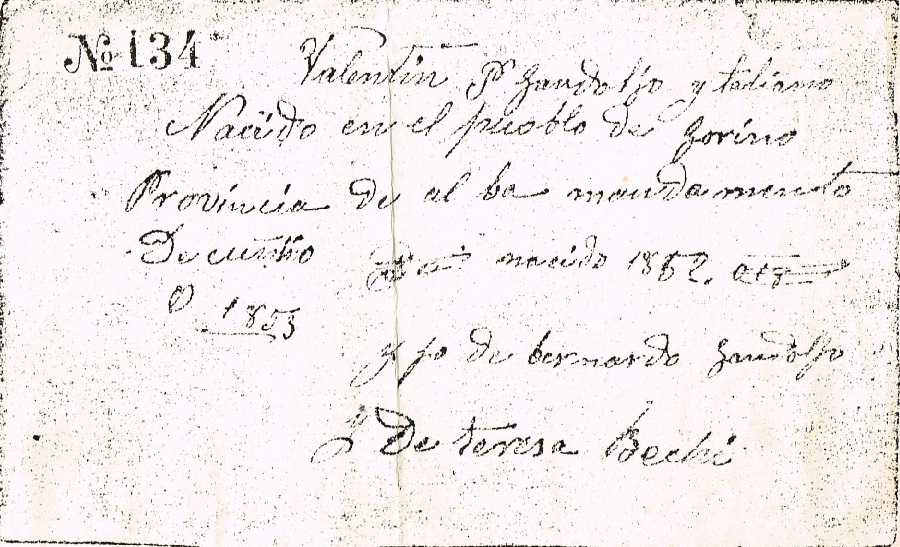 Nº 134
Valentin P Gandolfo ytaliano
Nacido en el pueblo de gorino
Provincia de al ba mandamento
De cunio nacido 1852.
O 1853
yjo de bernardo gandolfo
y De teresa Bechi